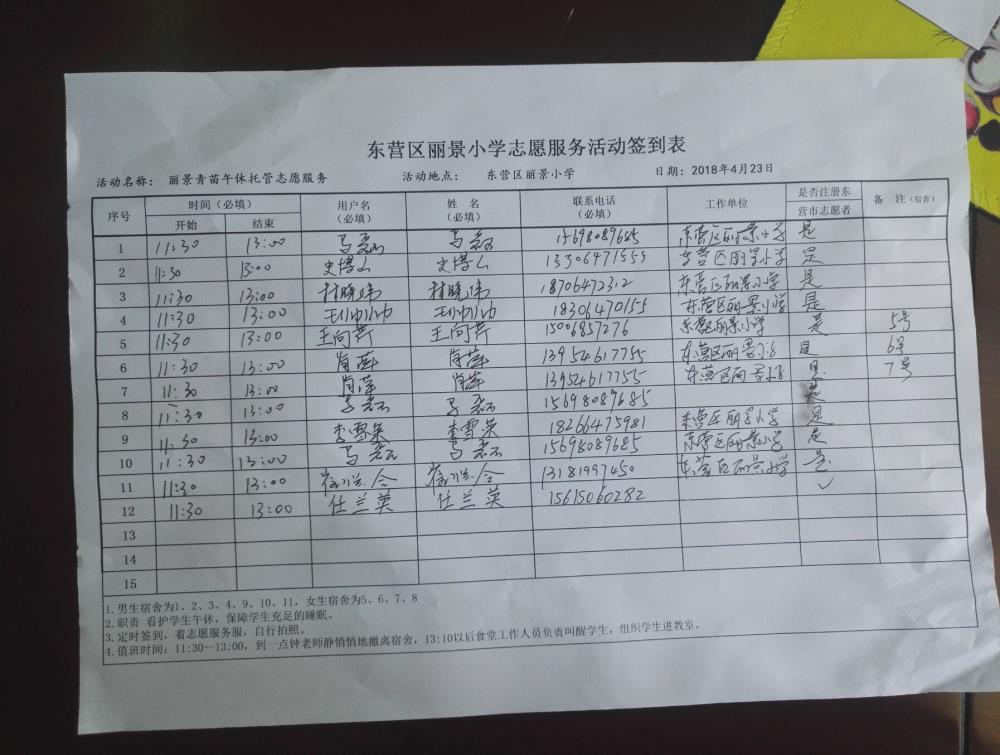 东营区丽景小学志愿服务活动签到表
活动名称： 丽景青苗午休托管志愿服务 活动地点： 东营区丽景小学 日期：2018年4月23日
序号 时间（必填） 用户名（必填） 姓 名（必填） 联系电话（必填） 工作单位 是否注册东营市志愿者 备 注（宿舍）
开始 结束
1 11:30 13:00 马磊 马磊 15698089685 东营区丽景小学 是
2 11:30 13:00 东营区丽景小学 是
3 11:30 13:00 林晓伟 林晓伟 18706472312 东营区丽景小学 是
4 11:30 13:00 18301470155 东营区丽景小学 是
5 11:30 13:00 王向芹 王向芹 15006857276 东营区丽景小学 是 5号
6 11:30 13:00 肖萍 肖萍 13954617755 东营区丽景小学 是 6号
7 11:30 13:00 肖萍 肖萍 13954617755 东营区丽景小学 是 7号
8 11:30 13:00 马磊 马磊 15698089685 是
9 11:30 13:00 李雪荣 李雪荣 18266475981 东营区丽景小学 是
10 11:30 13:00 马磊 马磊 15698089685 东营区丽景小学 是
11 11:30 13:00 13181997450 东营区丽景小学 是
12 11:30 13:00 仕兰英 仕兰英 15615060282 ✓
13
14
15
1.男生宿舍为1、2、3、4、9、10、11，女生宿舍为5、6、7、8
2.职责 看护学生午休，保障学生充足的睡眠。
3.定时签到，着志愿服务服，自行拍照。
4.值班时间：11:30--13:00，到一点钟老师静悄悄地撤离宿舍，13:10以后食堂工作人员负责叫醒学生，组织学生进教室。